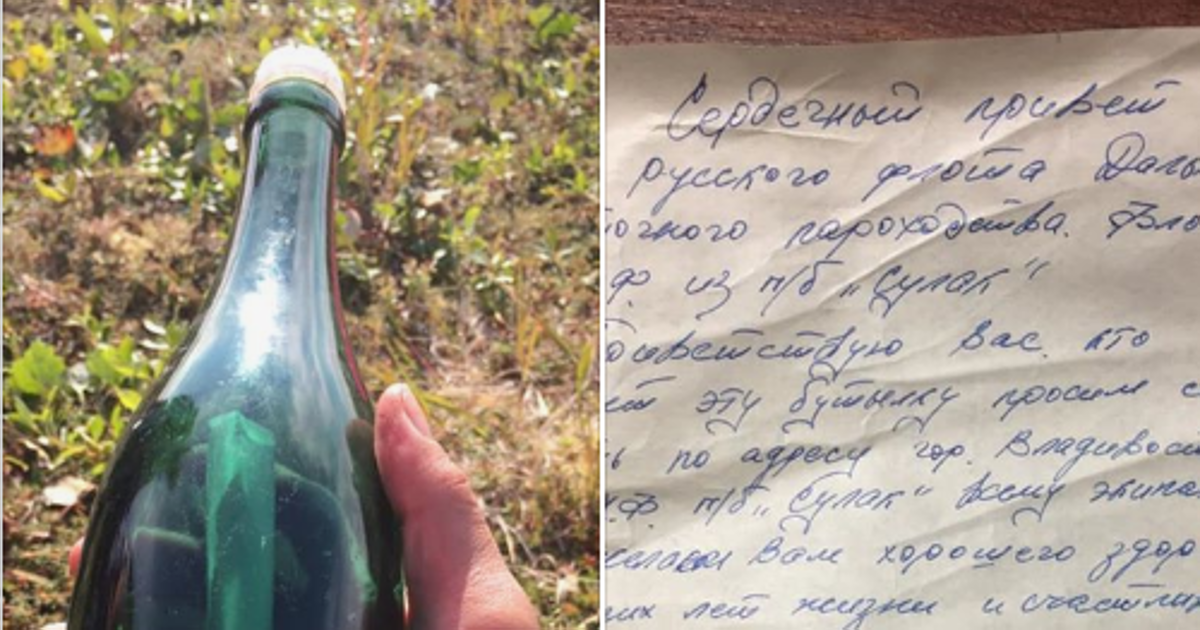 Сердечный привет
русского флота Даль
точного пароходства.
ф. из п/б „Сулак“
приветствую Вас. кто
ет эту бутылку просим с
ь по адресу гор. Владивос
.ф. п/б „Сулак“ всему экипа
желаем Вам хорошего здор
их лет жизни и счастли